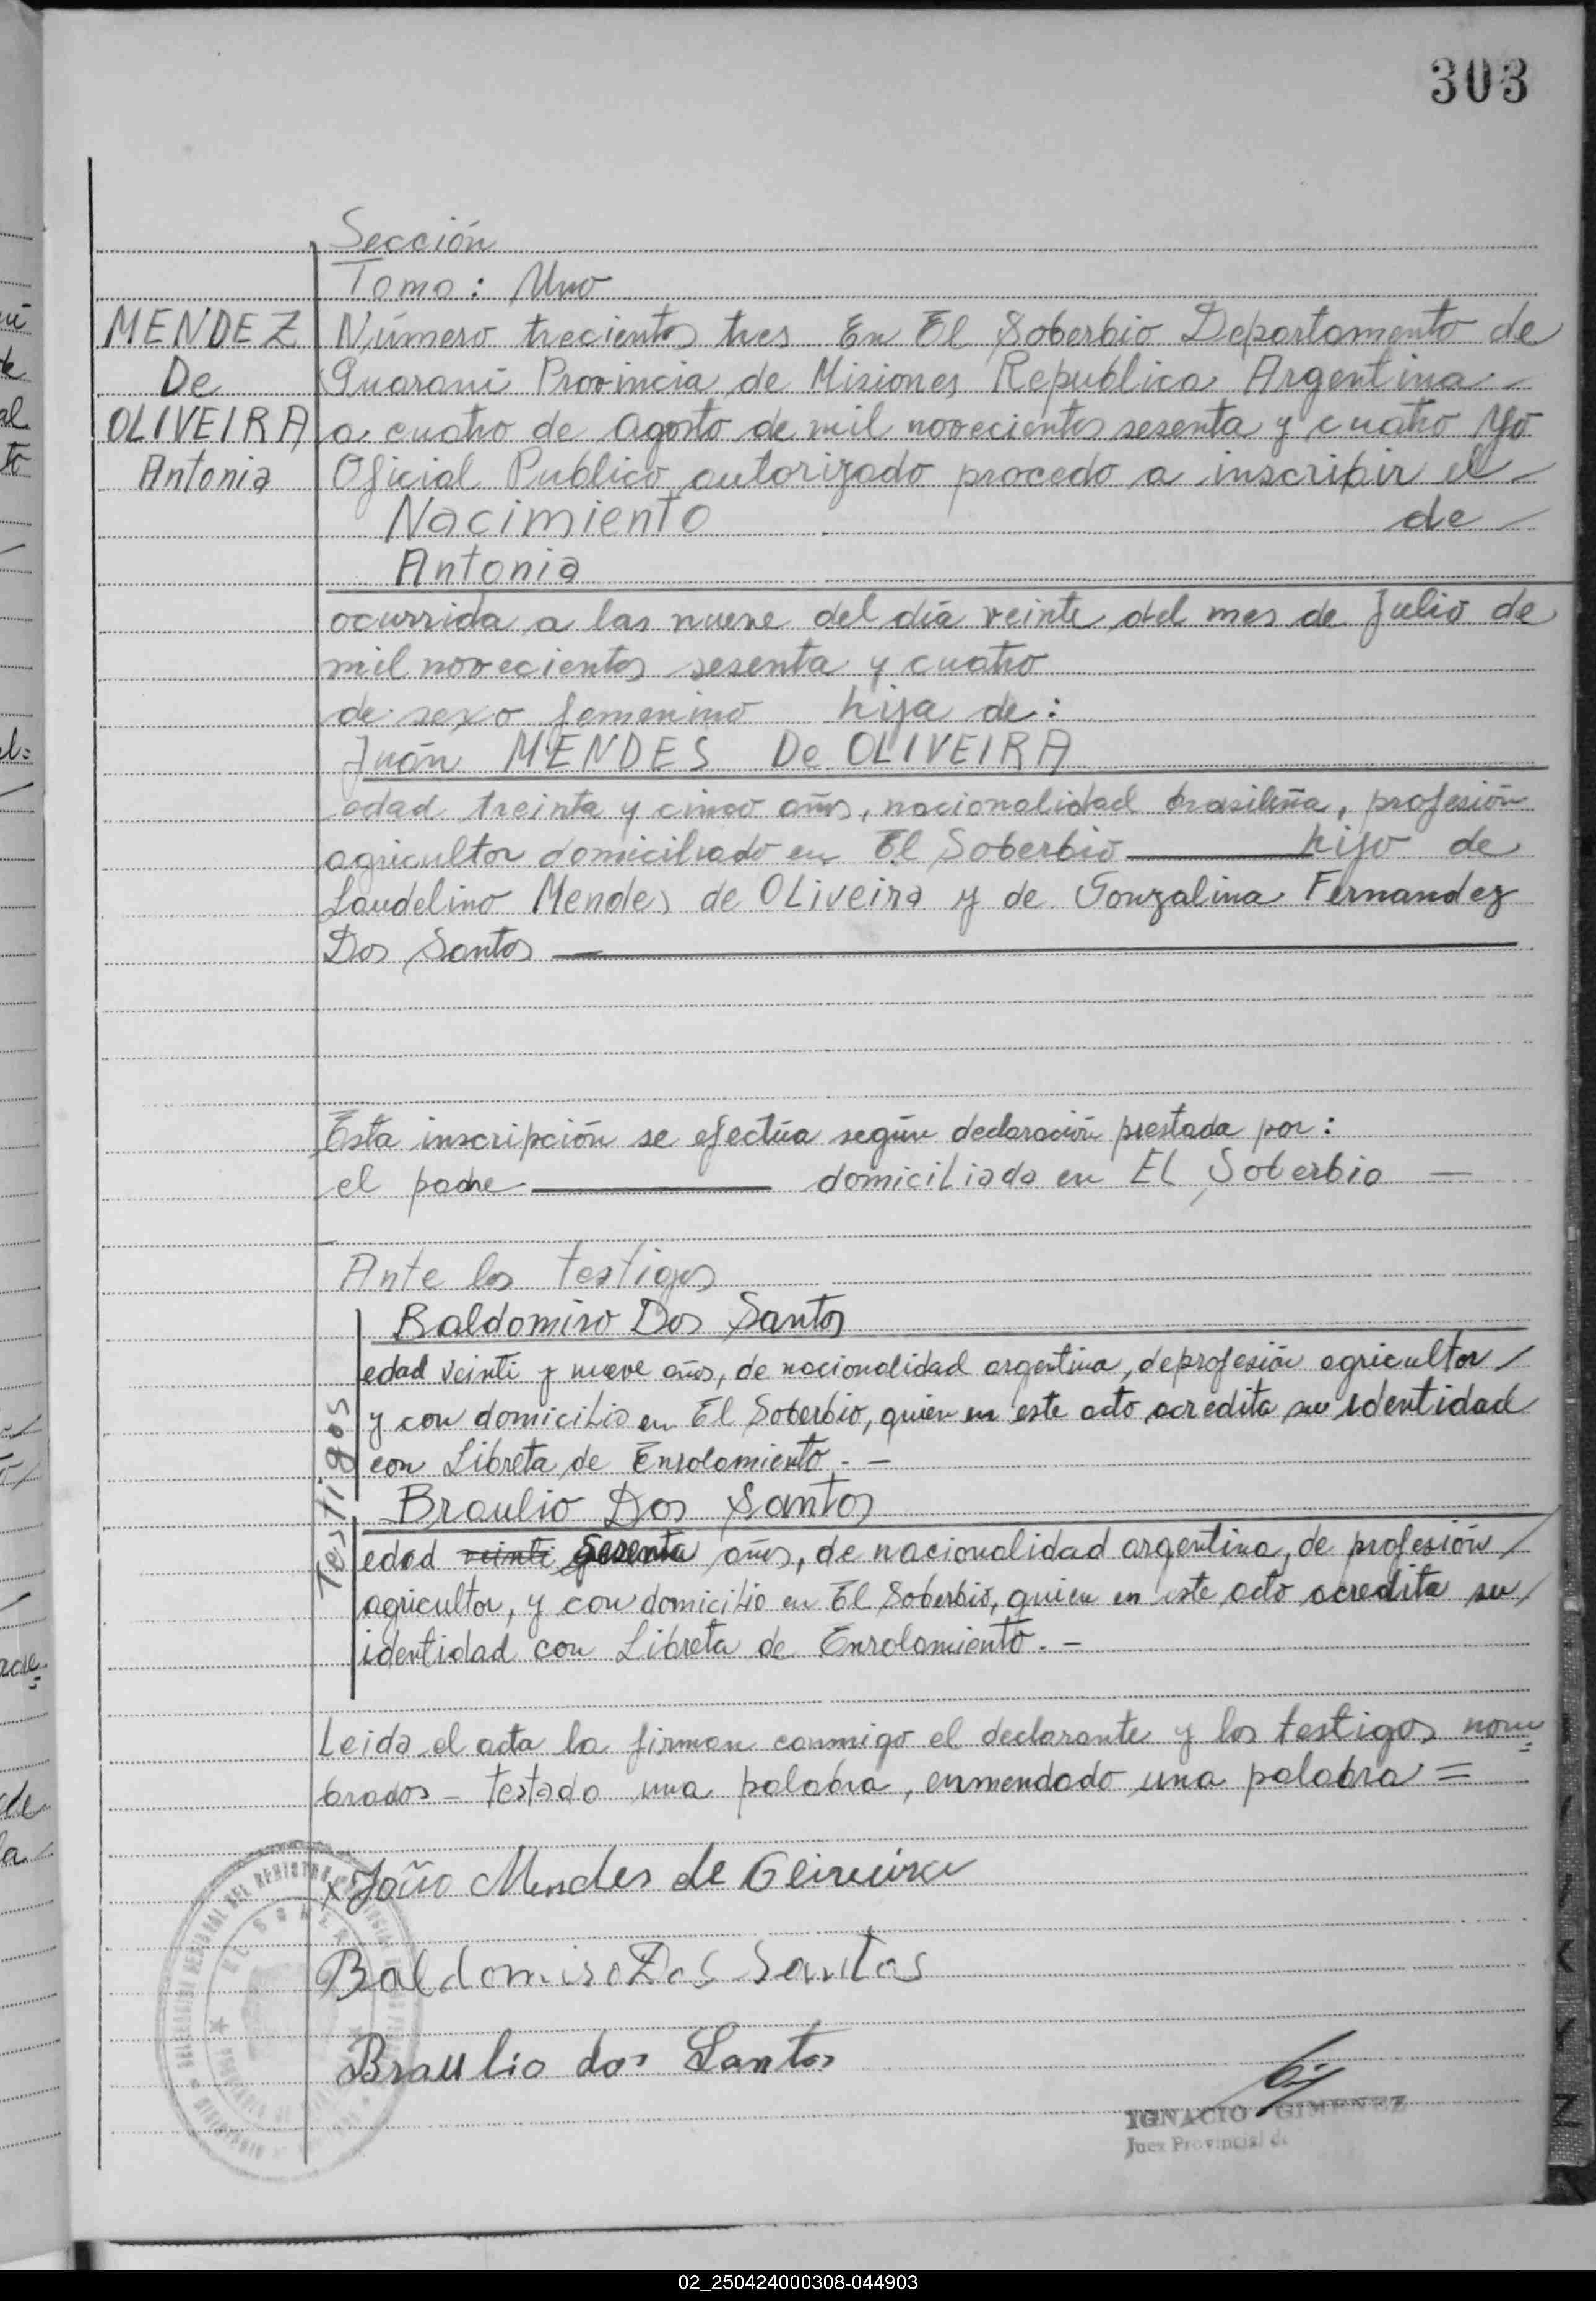 303
Sección
Tomo: Uno
MENDEZ
De
OLIVEIRA
Antonia
Número treciento tres En El Soberbio Departamento de
Guaraní Provincia de Misiones Republica Argentina -
a cuatro de agosto de mil novecientos sesenta y cuatro Yo
Oficial Publico autorizado procedo a inscribir el -
Nacimiento de -
Antonia
ocurrida a las nueve del día veinte del mes de Julio de
mil novecientos sesenta y cuatro
de sexo femenino hija de:
Juán MENDES De OLIVEIRA
edad treinta y cinco años, nacionalidad brasileña, profesión
agricultor domiciliado en El Soberbio — hijo de
Laudelino Mendes de OLiveira y de Gonzalina Fernandez
Dos Santos —
Esta inscripción se efectúa según declaración prestada por:
el padre — domiciliado en EL Soberbio —
Ante los testigos
Testigos
Baldomiro Dos Santos
edad veinti y nueve años, de nacionalidad argentina, de profesión agricultor /
y con domicilio en El Soberbio, quien en este acto acredita su identidad
con Libreta de Enrolamiento. -
Braulio Dos Santos
edad veinti sesenta años, de nacionalidad argentina, de profesión /
agricultor, y con domicilio en El Soberbio, quien en este acto acredita su /
identidad con Libreta de Enrolamiento. -
Leida el acta la firman conmigo el declarante y los testigos nom=
brados - testado una palabra, enmendado una palabra =
x João Mendes de Oliveira
Baldomiro Dos Santos
Braulio dos Santos
IGNACIO GIMENEZ
Juez Provincial de
02_250424000308-044903